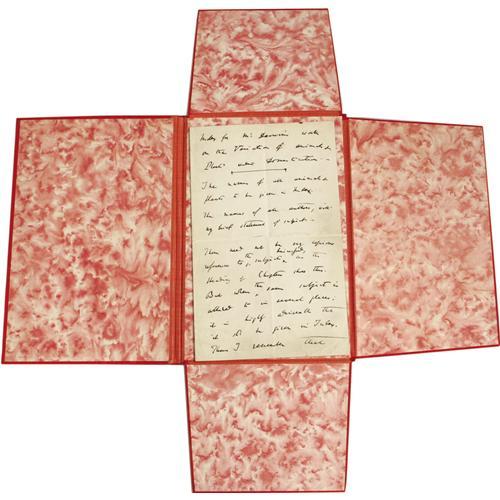 Index for Mr Darwin's work
on the Variation of animals &
Plants under Domestication —
The names of all animals &
plants to be given in Index.
The names of all authors, with
very brief statement of subject —
There need not be any
references to subjects in the
Heading of Chapters
But when the same subject is
alluded to in several places,
it is highly desirable that
it sh be given in Index.
Thus I remember that